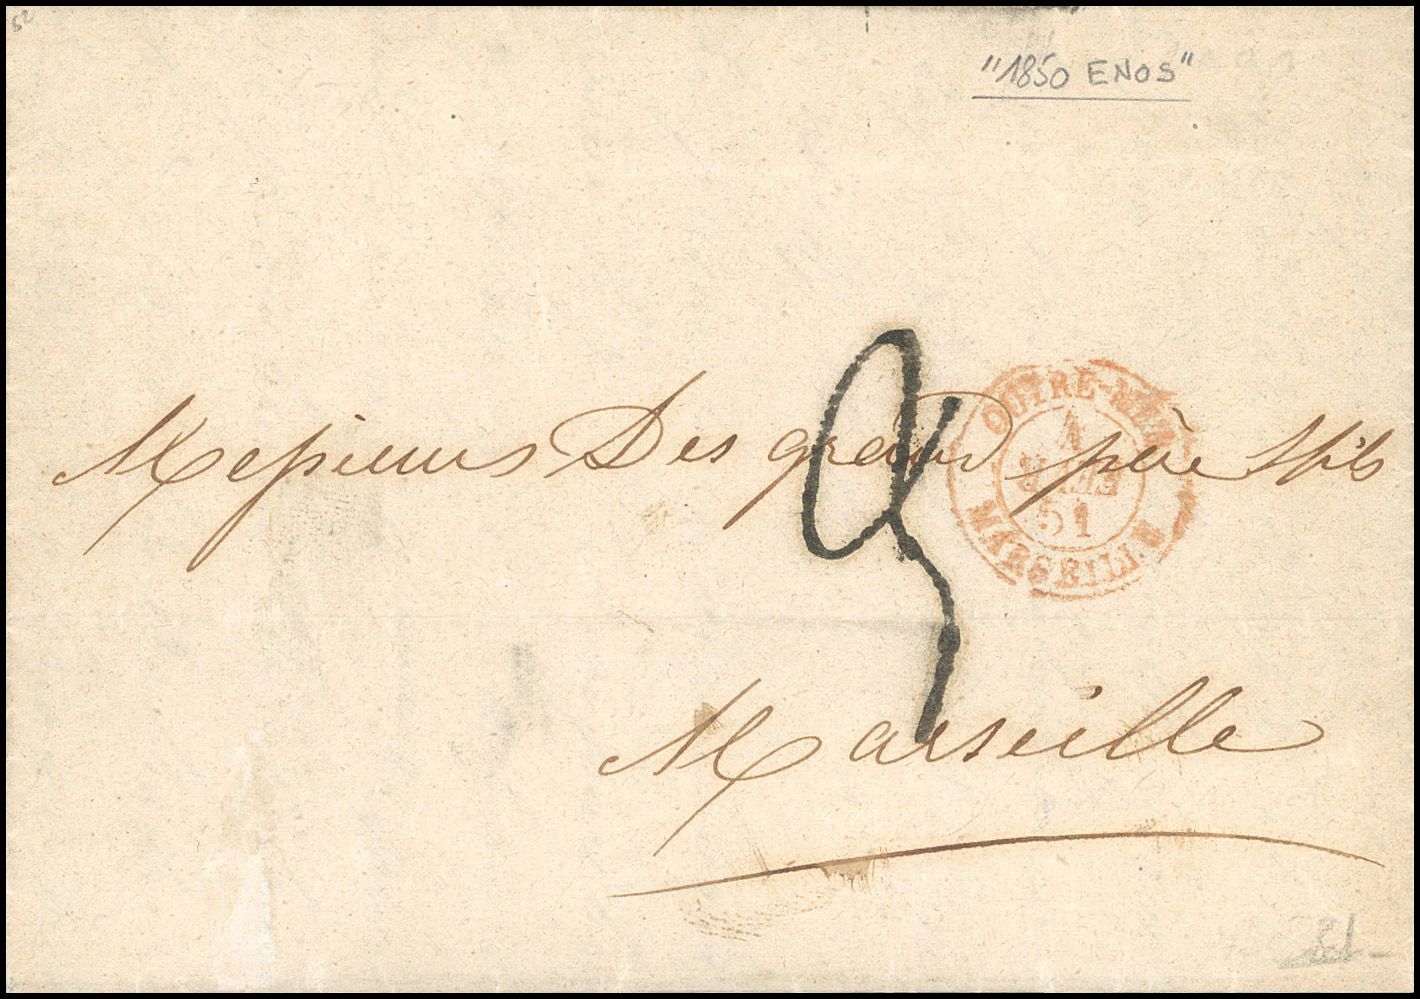 52
"1850 ENOS"
Messieurs Des grand père & fils
OUTRE-MER
1
51
MARSEILLE
Marseille